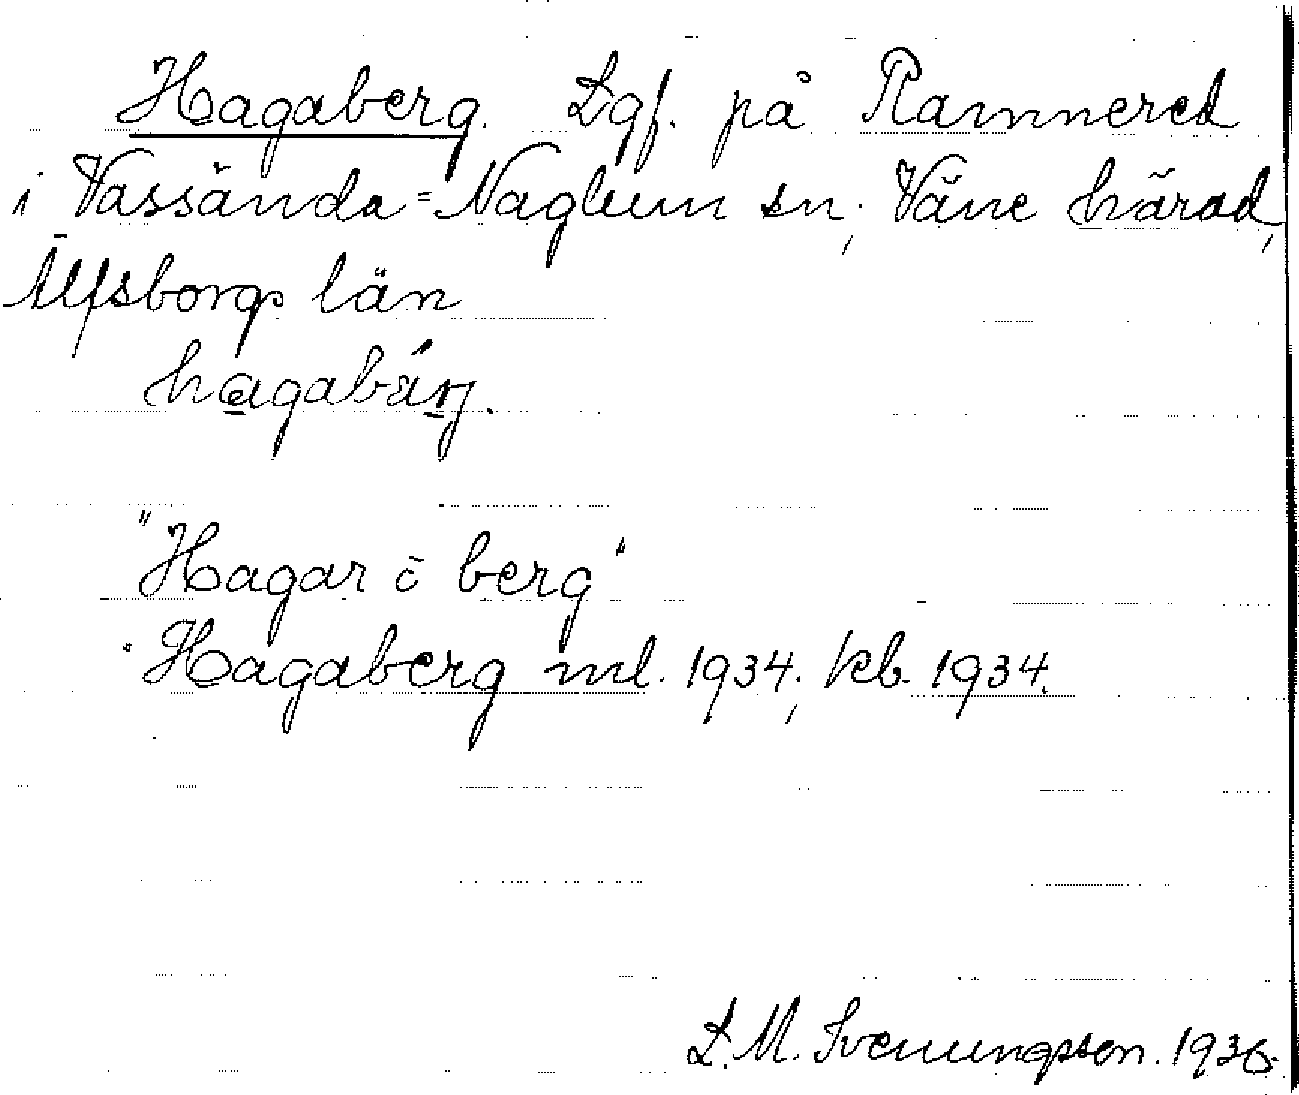 Hagaberg. Lgf. på Ramnered
i Vassända=Naglum sn; Väne härad,
Älfsborgs län
hagabärj.
"Hagar o berg"
Hagaberg ml. 1934; kb. 1934.
L. M. Svenungsson. 1936